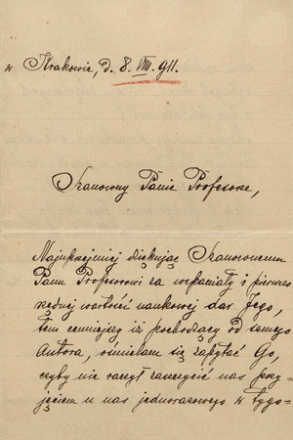 w Krakowie, d. 8. VIII. 911.
Szanowny Panie Profesorze,
Najuprzejmiej dziękując Szanownemu
Panu Profesorowi za wspaniały i pierwszo
rzędnej wartości naukowej dar Jego,
tem cenniejszy iż pochodzący od samego
Autora, ośmielam się zapytać Go,
czyby nie raczył zaszczycić nas przy
jęciem u nas jednorazowego w tygo=